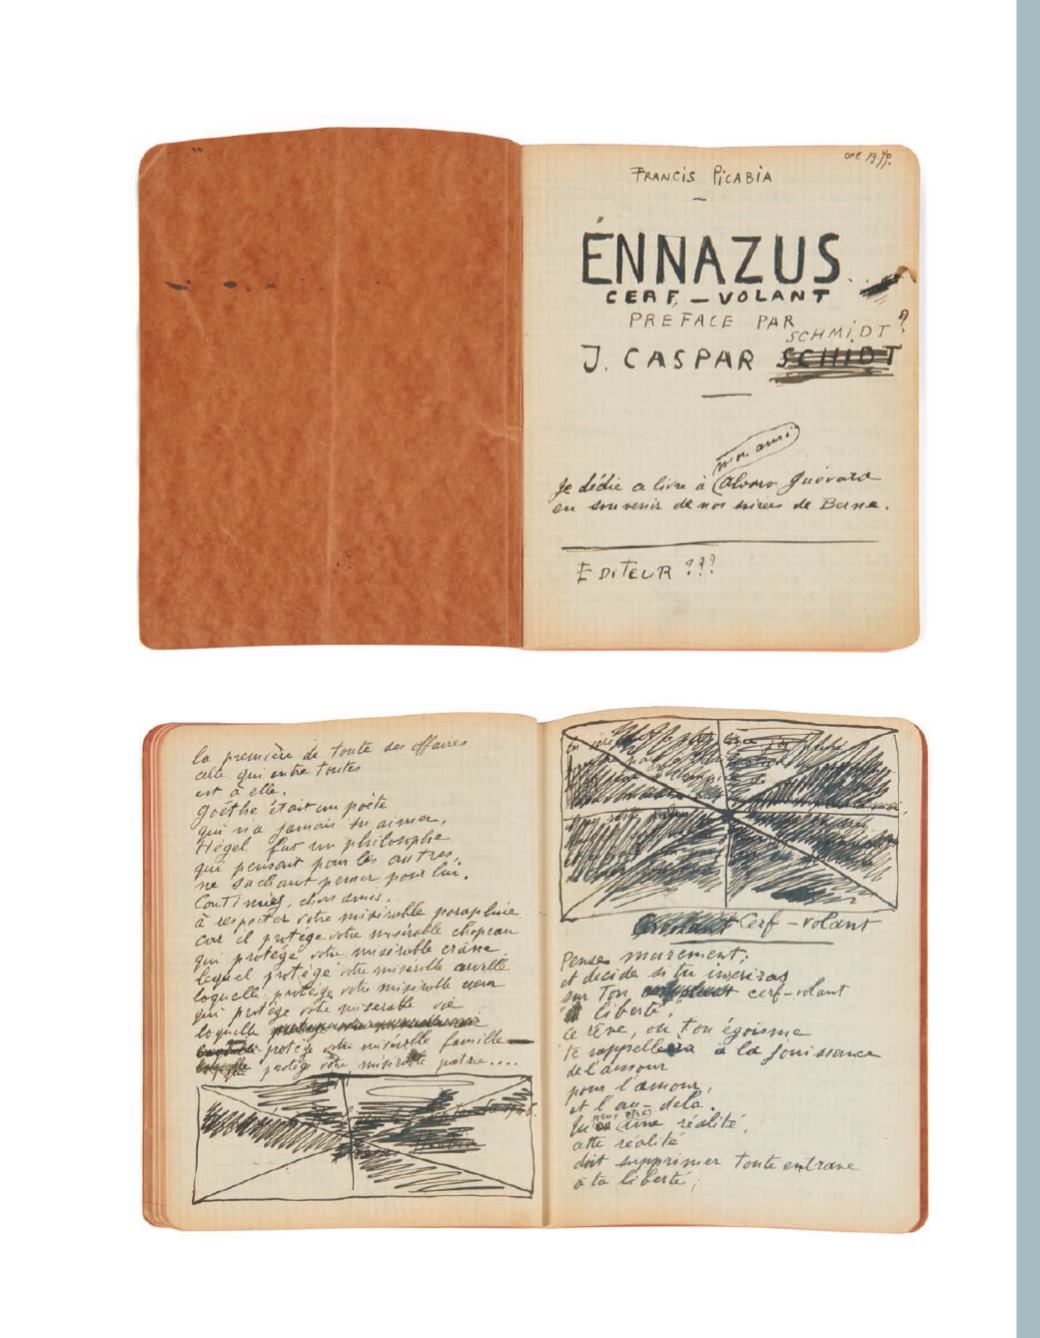 FRANCIS PICABIA
ÉNNAZUS
CERF – VOLANT
PREFACE PAR
SCHMIDT ?
J. CASPAR
mon ami
Je dédie ce livre à Alvaro Guevara
en souvenir de nos soirées de Berne.
EDITEUR ???
la première de toute ses affaires
celle qui entre toutes
est à elle.
Goëthe était un poète
qui n'a jamais su aimer,
Hégel fut un philosophe
qui pensait pour les autres,
ne sachant penser pour lui.
Continuez, chers amis,
à respecter votre misérable parapluie
car il protège votre misérable chapeau
qui protège votre misérable crâne
lequel protège votre misérable cervelle
laquelle protège votre misérable cœur
qui protège votre misérable vie
laquelle
protège votre misérable famille
protège votre misérable patrie....
Cerf – volant
Pense murement,
et décide si tu inscriras
sur ton cerf-volant
liberté,
ce rêve, où ton égoisme
te rappellera à la jouissance
de l'amour
pour l'amour,
et l'au-delà.
une réalité,
cette réalité
doit supprimer toute entrave
à ta liberté;